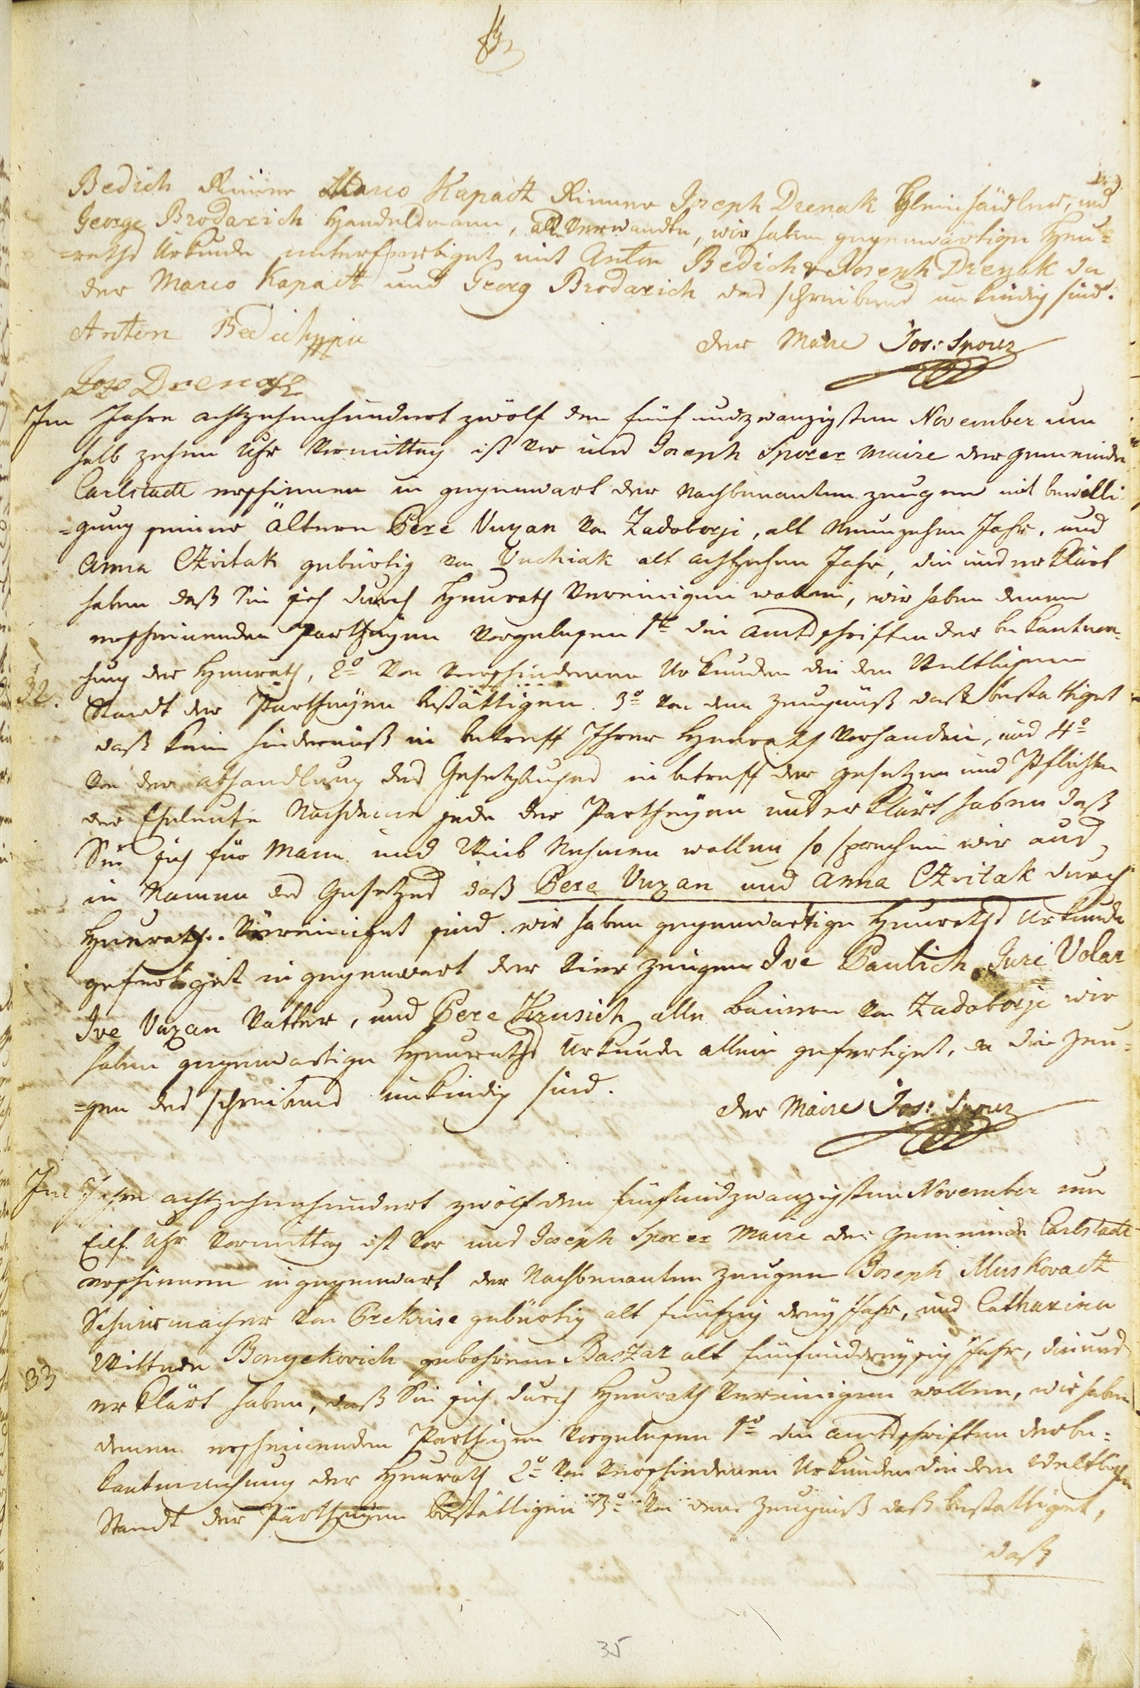 Bedich Riemer Marco Kapactt Riemer Joseph Drenak Kleinhäudler, und
George Brodarich Handelsmann, all Verwandte, wir haben gegenwärtige Heu=
=raths Urkunde unterfertiget mit Anton Bedich & Joseph Drenak da
der Marco Kapactt und Georg Brodarich des schreibens unkündig sind.
Anton Bedich
der Maire Jos: Sporer
Joso Drenak
Im Jahre achtzehenhundert zwölf den fünf undzwanzigsten November um
halb zehen Uhr Vormittag ist vor uns Joseph Sporer Maire der gemeinde
Carlstadt erschienen in gegenwart der Nachbenanten zeugen mit bewilli
=gung seiner Ältern Pere Vuxan von Zadoborje, alt Neunzehen Jahr, und
Anna Czvitak gebürtig von Vuchiak alt achtzehen Jahr, die uns erklärt
haben daß Sie sich durch Heurath Vereinigen wollen, wir haben denen
erscheinenden Partheyen vorgelesen 1tens die Amtsschriften der bekantma=
32.
chung der Heurath, 2o von verschiedenen Urkunden die den Weltlichen
Standt der Partheyen bestättigen. 3o von dem Zeugnüß daß bestattiget
daß kein hindernüß in betreff Ihrer Heurath vorhanden, und 4o
von der abhandlung des Gesetzbuches in betreff der gesetzen und Pflichten
der Eheleute Nachdeme jede der Partheyen uns erklärt haben daß
Sie sich für Mann und Weib Nehmen wollen so sprechen wir aus,
in Namen des Gesetzes daß Pere Vuxan und Anna Czvitak durch
Heurath Vereiniget sind. wir haben gegenwärtige Heuraths Urkunde
gefertiget in gegenwart der vier zeugen Ive Paulich, Jure Volar
Ive Vuxan Vatter, und Pere Krusich alle Bauern von Zadoborje wir
haben gegenwärtige Heuraths Urkunde allein gefertiget, da die zeu=
=gen des schreibens unkündig sind.
der Maire Jos: Sporer
Im Jahre achtzehenhundert zwölf den fünfundzwanzigsten November um
Eilf Uhr Vormittag ist vor uns Joseph Sporer Maire der Gemeinde Carlstadt
erschienen in gegenwart der Nachbenanten zeugen Joseph Muskovactt
Schuirmacher von Prekrise gebürtig alt fünfzig drey Jahr, und Catharina
33
Wittwe Bongekovich gebohrene Baszar alt fünfunddreyzig Jahr, die uns
erklärt haben, daß Sie sich durch Heurath Vereinigen wollen, wir haben
denen erscheinenden Partheyen vorgelesen 1o die Amtsschriften der be=
kantmachung der Heurath 2o von verschiedenen Urkunden die den Weltlichen
Standt der Partheyen bestättigen 3o von dem Zeugniß daß bestattiget,
daß
35